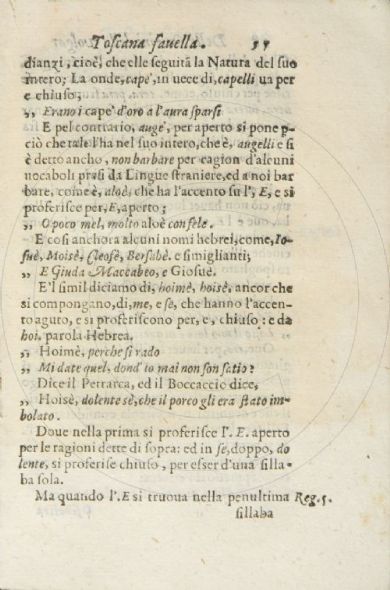 Toscana favella. 57
dianzi, cioè, che elle seguitã la Natura del suo
intero; La onde, cape', in uece di, capelli ua per
e chiuso;
„ Erano i cape' d'oro a l'aura sparsi
E pel contrario, auge', per aperto si pone p-
ciò che tale l'ha nel suo intero, che è, augelli e si
è detto ancho, non barbare per cagion d'alcuni
uocaboli prasi da Lingue straniere, ed a noi bar
bare, come è, aloè, che ha l'accento su l', E, e si
proferisce per, E, aperto;
„ O poco mel, molto aloè con fele.
E cosi anchora alcuni nomi hebrei, come, Io-
suè, Moisè, Cleosè, Bersabè. e simiglianti;
„ E Giuda Maccabeo, e Giosuè.
E'l simil diciamo di, hoimè, hoisè, ancor che
si compongano, di, me, e se, che hanno l'accen-
to aguto, e si proferiscono per, e, chiuso: e da
hoi, parola Hebrea.
„ Hoimè, perche sì rado
„ Mi date quel, dond' io mai non son satio?
Dice il Petrarca, ed il Boccaccio dice,
„ Hoisè, dolente sè, che il porco gli era stato im-
bolato.
Doue nella prima si proferisce l'. E. aperto
per le ragioni dette di sopra: ed in se, doppo, do
lente, si proferise chiuso, per esser d'una silla-
ba sola.
Ma quando l'. E si truoua nella penultima Reg. 5.
sillaba